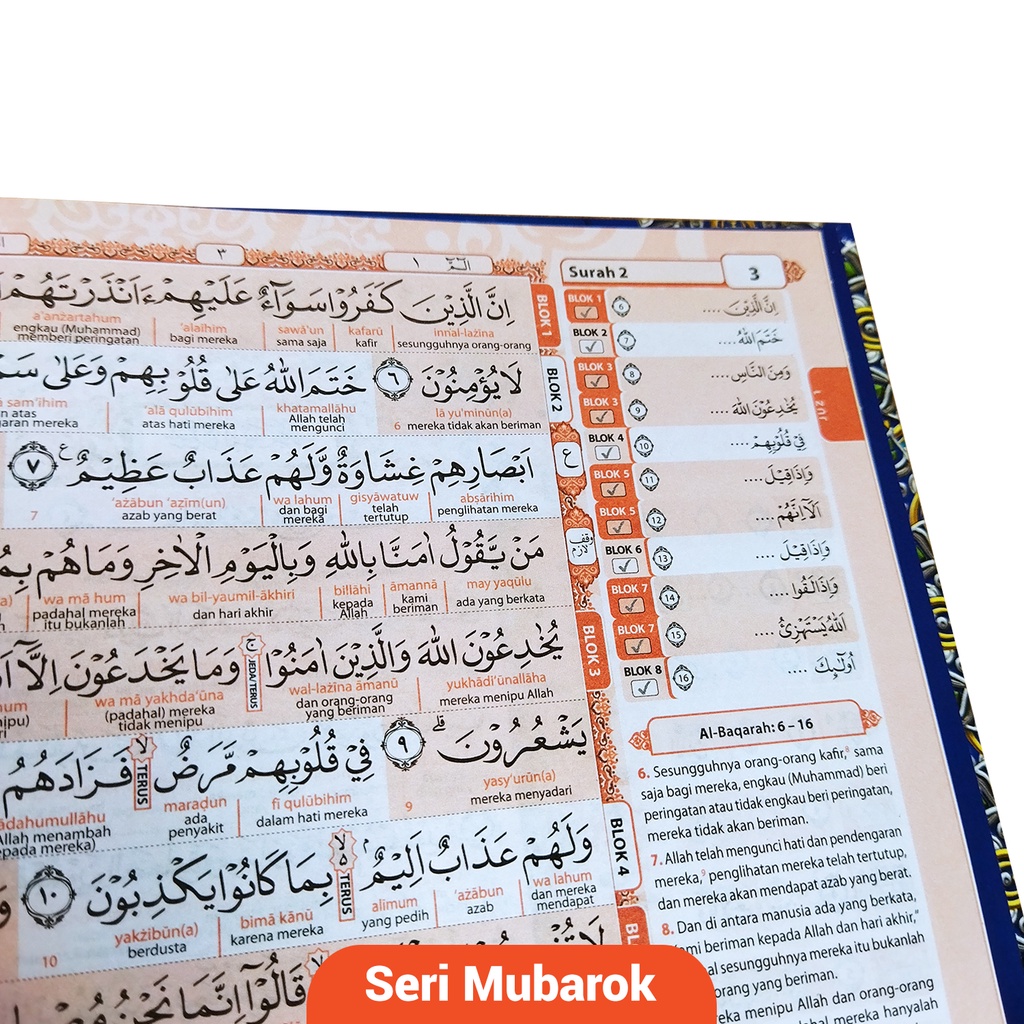 ٣
الۤمّۤ ١
Surah 2
3
BLOK 1
اِنَّ الَّذِيْنَ كَفَرُوْا سَوَاۤءٌ عَلَيْهِمْ ءَاَنْذَرْتَهُمْ
innal-lażīna kafarū sawā'un 'alaihim a'anżartahum
sesungguhnya orang-orang kafir sama saja bagi mereka engkau (Muhammad) memberi peringatan
BLOK 2
لَا يُؤْمِنُوْنَ ٦ خَتَمَ اللّٰهُ عَلٰى قُلُوْبِهِمْ وَعَلٰى
lā yu'minūn(a) khatamallāhu 'alā qulūbihim sam'ihim
6 mereka tidak akan beriman Allah telah mengunci atas hati mereka atas
ع
اَبْصَارِهِمْ غِشَاوَةٌ وَّلَهُمْ عَذَابٌ عَظِيْمٌ ࣖ ٧
abṣārihim gisyāwatuw wa lahum 'ażābun 'aẓīm(un)
penglihatan mereka telah tertutup dan bagi mereka azab yang berat 7
وقف لازم
مَنْ يَّقُوْلُ اٰمَنَّا بِاللّٰهِ وَبِالْيَوْمِ الْاٰخِرِ وَمَا هُمْ
may yaqūlu āmannā billāhi wa bil-yaumil-ākhiri wa mā hum
ada yang berkata kami beriman kepada Allah dan hari akhir padahal mereka itu bukanlah
BLOK 3
يُخٰدِعُوْنَ اللّٰهَ وَالَّذِيْنَ اٰمَنُوْا ۚ وَمَا يَخْدَعُوْنَ اِلَّآ
JEDA/TERUS
yukhādi'ūnallāha wal-lażīna āmanū wa mā yakhda'ūna
mereka menipu Allah dan orang-orang yang beriman (padahal) mereka tidak menipu
يَشْعُرُوْنَ ۗ ٩ فِيْ قُلُوْبِهِمْ مَّرَضٌ ۙ فَزَادَهُمُ
TERUS
yasy'urūn(a) fī qulūbihim maraḍun
mereka menyadari 9 dalam hati mereka ada penyakit
BLOK 4
وَلَهُمْ عَذَابٌ اَلِيْمٌ ۢ ەۙ بِمَا كَانُوْا يَكْذِبُوْنَ ١٠
TERUS
wa lahum 'ażābun alīmum bimā kānū yakżibūn(a)
dan mereka mendapat azab yang pedih karena mereka berdusta
10
قَالُوْٓا اِنَّمَا نَحْنُ
BLOK 1 6 اِنَّ الَّذِيْنَ ....
BLOK 2 7 خَتَمَ اللّٰهُ ....
BLOK 3 8 وَمِنَ النَّاسِ ....
BLOK 3 9 يُخٰدِعُوْنَ اللّٰهَ ....
BLOK 4 10 فِيْ قُلُوْبِهِمْ ....
BLOK 5 11 وَاِذَا قِيْلَ ....
BLOK 5 12 اَلَآ اِنَّهُمْ ....
BLOK 6 13 وَاِذَا قِيْلَ ....
BLOK 7 14 وَاِذَا لَقُوا ....
BLOK 7 15 اَللّٰهُ يَسْتَهْزِئُ ....
BLOK 8 16 اُولٰۤىِٕكَ ....
Juz 1
Al-Baqarah: 6 – 16
6. Sesungguhnya orang-orang kafir,⁸ sama
saja bagi mereka, engkau (Muhammad) beri
peringatan atau tidak engkau beri peringatan,
mereka tidak akan beriman.
7. Allah telah mengunci hati dan pendengaran
mereka,⁹ penglihatan mereka telah tertutup,
dan mereka akan mendapat azab yang berat.
8. Dan di antara manusia ada yang berkata,
beriman kepada Allah dan hari akhir,"
sesungguhnya mereka itu bukanlah
orang yang beriman.
menipu Allah dan orang-orang
mereka hanyalah
Seri Mubarok